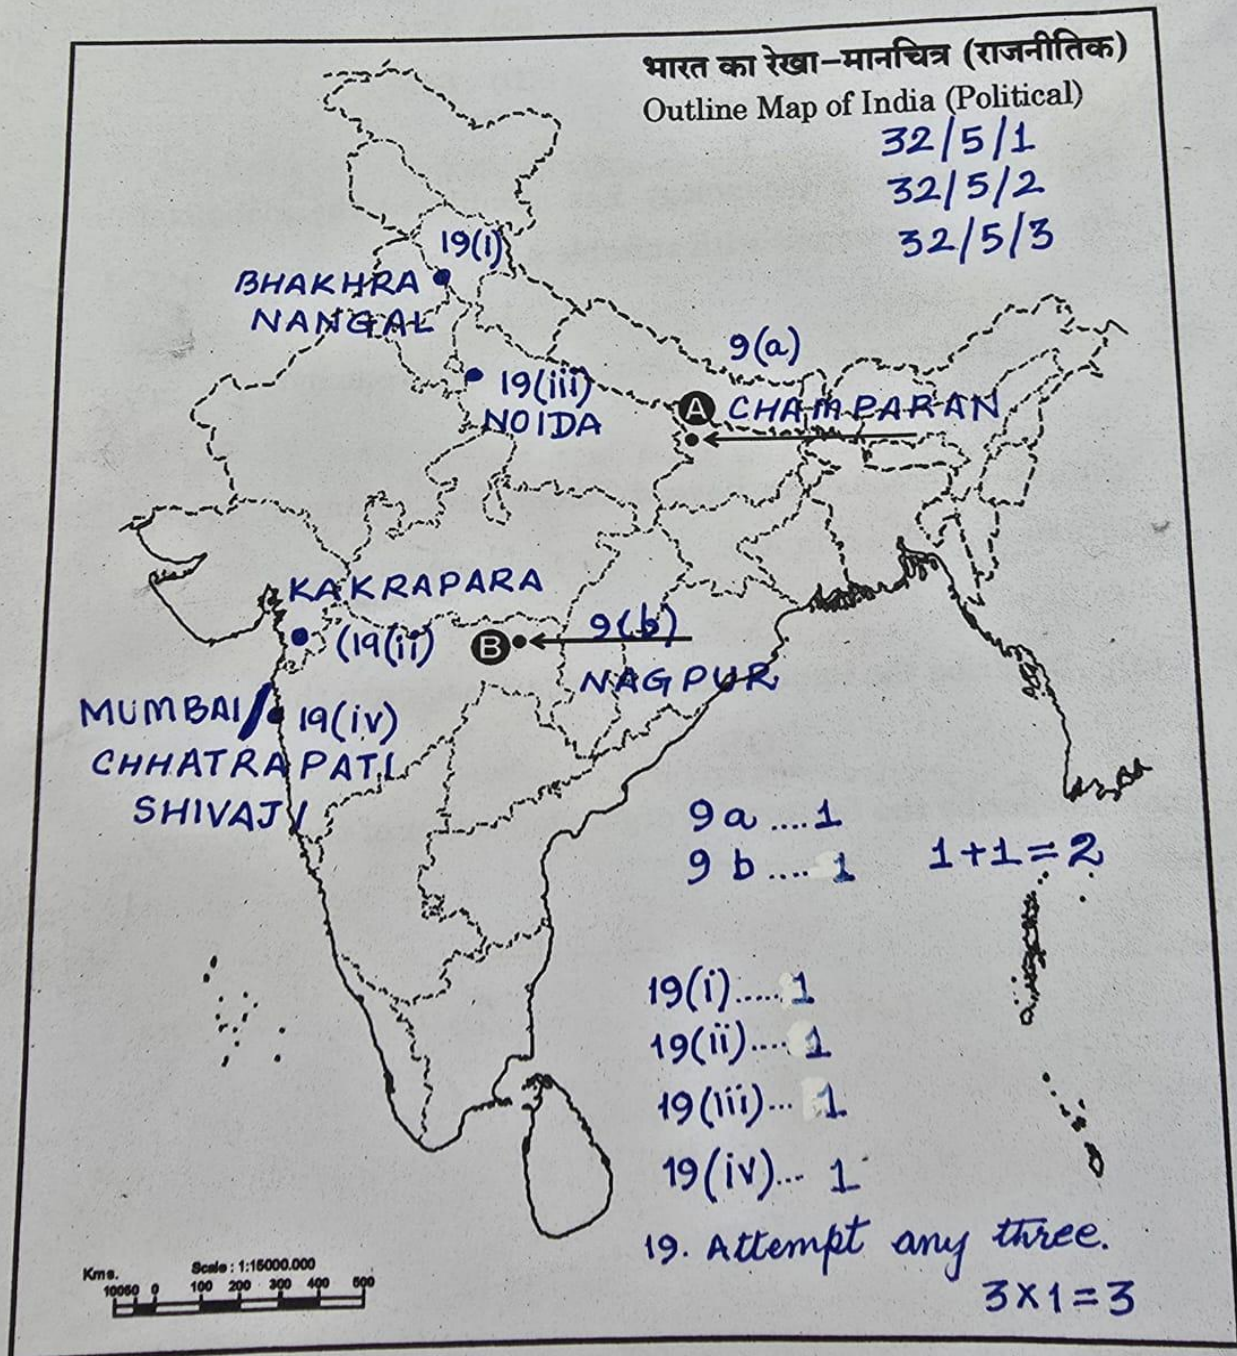 भारत का रेखा–मानचित्र (राजनीतिक)
Outline Map of India (Political)
32/5/1
32/5/2
32/5/3
19(i)
BHAKHRA
NANGAL
9(a)
19(iii)
NOIDA
A CHAMPARAN
KAKRAPARA
(19(ii)
B
9(b)
NAGPUR
MUMBAI/ 19(iv)
CHHATRAPATI
SHIVAJI
9a....1
9 b.... 1
1+1=2
19(i)..... 1
19(ii).... 1
19(iii)... 1
19(iv)... 1
19. Attempt any three.
3×1=3
Scale : 1:15000.000
Kms.
10050 0 100 200 300 400 500